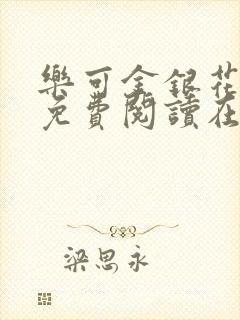 樂可金銀花
免費閱讀在
梁思永